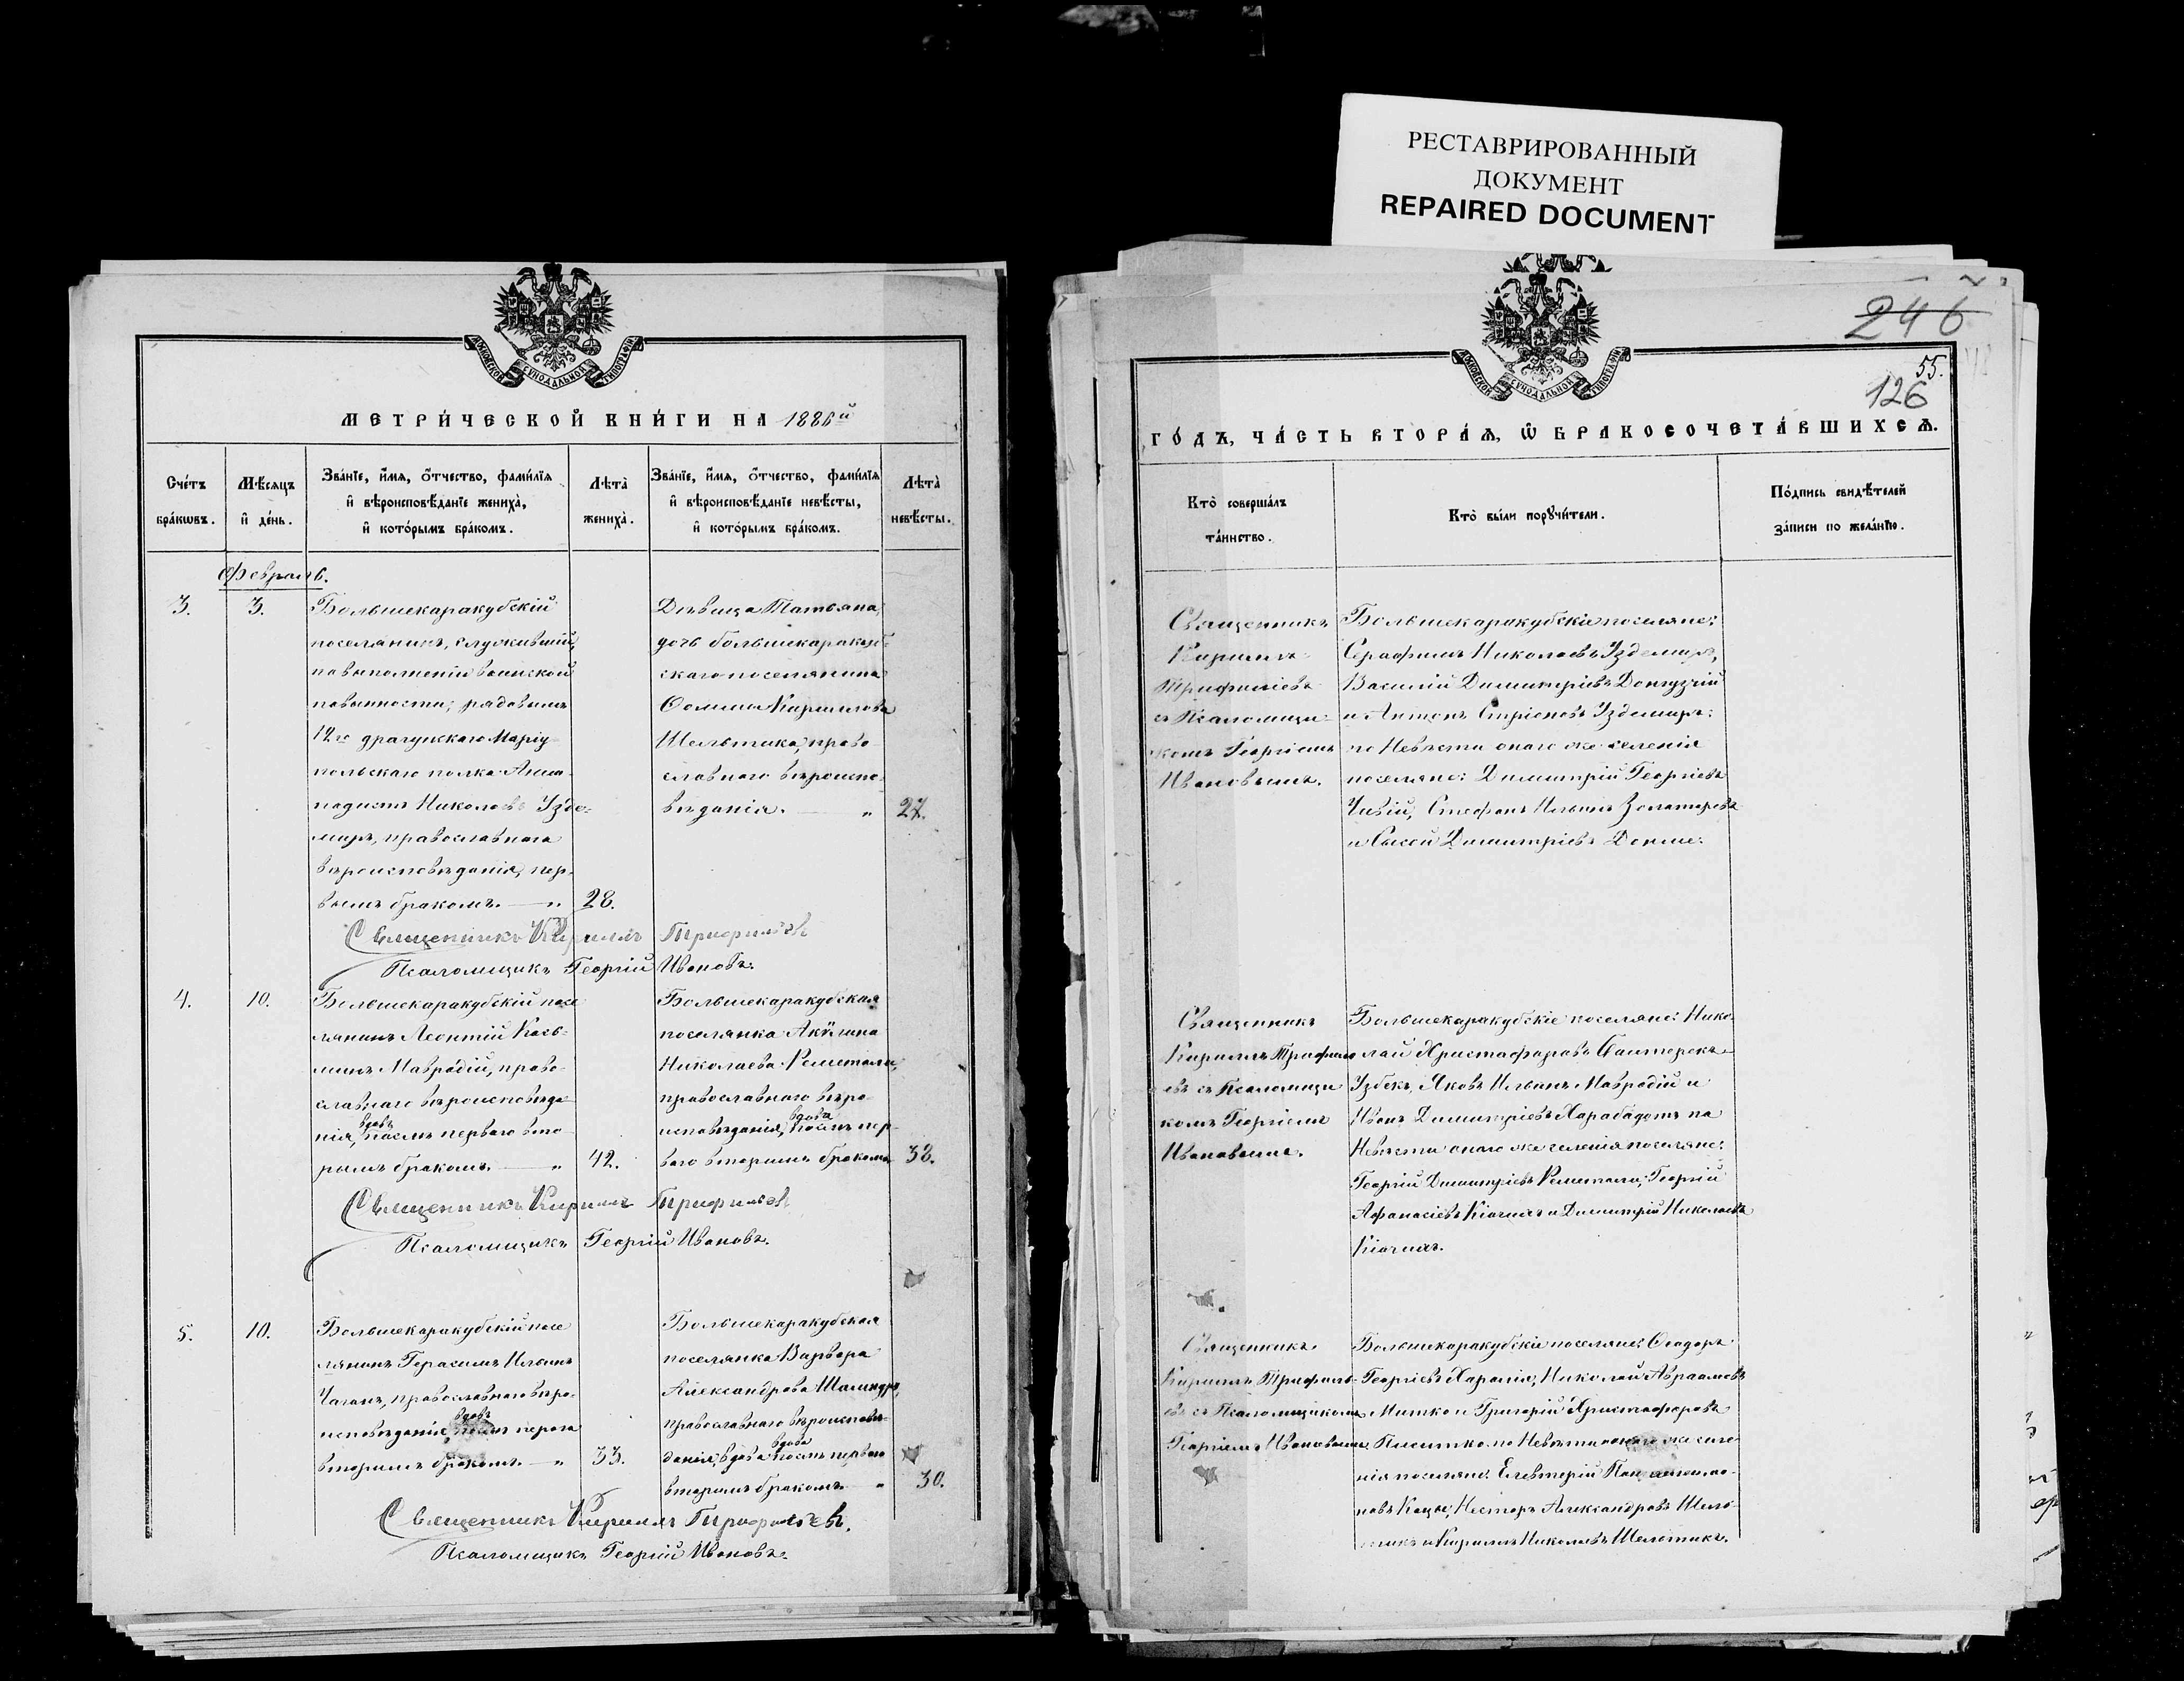 РЕСТАВРИРОВАННЫЙ
ДОКУМЕНТ
REPAIRED DOCUMENT
МОСКОВСКОЙ СѴНОДАЛЬНОЙ ТИПОГРАФІИ
МЕТРИ́ЧЕСКОЙ КНИ́ГИ НА 1886й
Сче́тъ бра́кωвъ.
Мѣ́сяцъ и҆ де́нь.
Зва́нїе, и҆́мя, ѻ҆́тчество, фами́лїя
и҆ вѣроисповѣ́данїе жениха̀,
и҆ кото́рымъ бра́комъ.
Лѣта̀ жениха̀.
Зва́нїе, и҆́мя, ѻ҆́тчество, фами́лїя
и҆ вѣроисповѣ́данїе невѣ́сты,
и҆ кото́рымъ бра́комъ.
Лѣта̀ невѣ́сты.
Февраль.
3.
3.
Большекаракубскій
поселянинъ, служившій,
по выполненіи воинской
повинности, рядовымъ
12го драгунскаго Маріу-
польскаго полка
Николаевъ Узде-
миръ, православнаго
вѣроисповѣданія, пер-
вымъ бракомъ. — „
28.
Дѣвица Татьяна,
дочь большекаракуб-
скаго поселянина
Ѳомы Кириллова
Шельтика, право-
славнаго вѣроиспо-
вѣданія. — „
27.
Священникъ Кириллъ Трифильевъ
Псаломщикъ Георгій Ивановъ.
4.
10.
Большекаракубскій посе
лянинъ Леонтій Козь-
минъ Мавродій, право-
славнаго вѣроисповѣда-
вдовъ
нія, послѣ перваго вто-
рымъ бракомъ. — „
42.
Большекаракубская
поселянка Акулина
Николаева
православнаго вѣро-
вдова
исповѣданія, послѣ пер-
ваго вторымъ бракомъ
38.
Священникъ Кириллъ Трифильевъ
Псаломщикъ Георгій Ивановъ.
5.
10.
Большекаракубскій посе
лянинъ Герасимъ Ильинъ
Чаганъ, православнаго вѣро-
вдовъ
исповѣданія, послѣ
вторымъ бракомъ. — „
33.
Большекаракубская
поселянка Варвара
Александрова
православнаго вѣроисповѣ-
вдова
данія, вдова послѣ перваго
вторымъ бракомъ. „
30.
Священникъ Кириллъ Трифильевъ.
Псаломщикъ Георгій Ивановъ.
246
55.
126
МОСКОВСКОЙ СѴНОДАЛЬНОЙ ТИПОГРАФІИ
ГО́ДЪ, ЧА́СТЬ ВТОРА́Я, Ѽ БРАКОСОЧЕТА́ВШИХСЯ.
Кто̀ соверша́лъ
та́инство.
Кто̀ бы́ли порꙋчи́тели.
По́дпись свидѣ́телей
за́писи по жела́нїю.
Священникъ
Кириллъ
Трифильевъ
съ Псаломщи-
комъ Георгіемъ
Ивановымъ.
Большекаракубскіе поселяне:
Серафимъ Николаевъ Уздемиръ,
Василій Димитріевъ Донгузчій
и Антонъ Уздемиръ:
по Невѣсти онаго же селенія
поселяне: Димитрій Георгіевъ
Стефанъ Ильинъ
и Сысой Димитріевъ
Священникъ
Кириллъ Трифиль
евъ съ Псаломщи
комъ Георгіемъ
Ивановымъ.
Большекаракубскіе поселяне: Нико-
лай Христофоровъ
Узбекъ, Яковъ Ильинъ Мавродій и
Иванъ Димитріевъ по
Невѣсти онаго же селенія поселяне:
Георгій Димитріевъ Георгій
Афанасіевъ и Димитрій Николаевъ
Священникъ
Кириллъ Трифиль-
евъ съ Псаломщикомъ
Георгіемъ Ивановымъ.
Большекаракубскіе поселяне: Ѳеодоръ
Георгіевъ Николай Авраамовъ
и Григорій Христофоровъ
по Невѣсти онаго же селе
нія поселяне: Елевтерій
Несторъ Александровъ
и Кириллъ Николаевъ Шелтикъ.